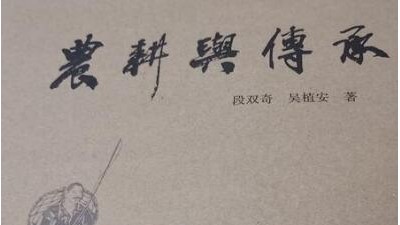 農耕與傳承
段双奇 吴植安 著